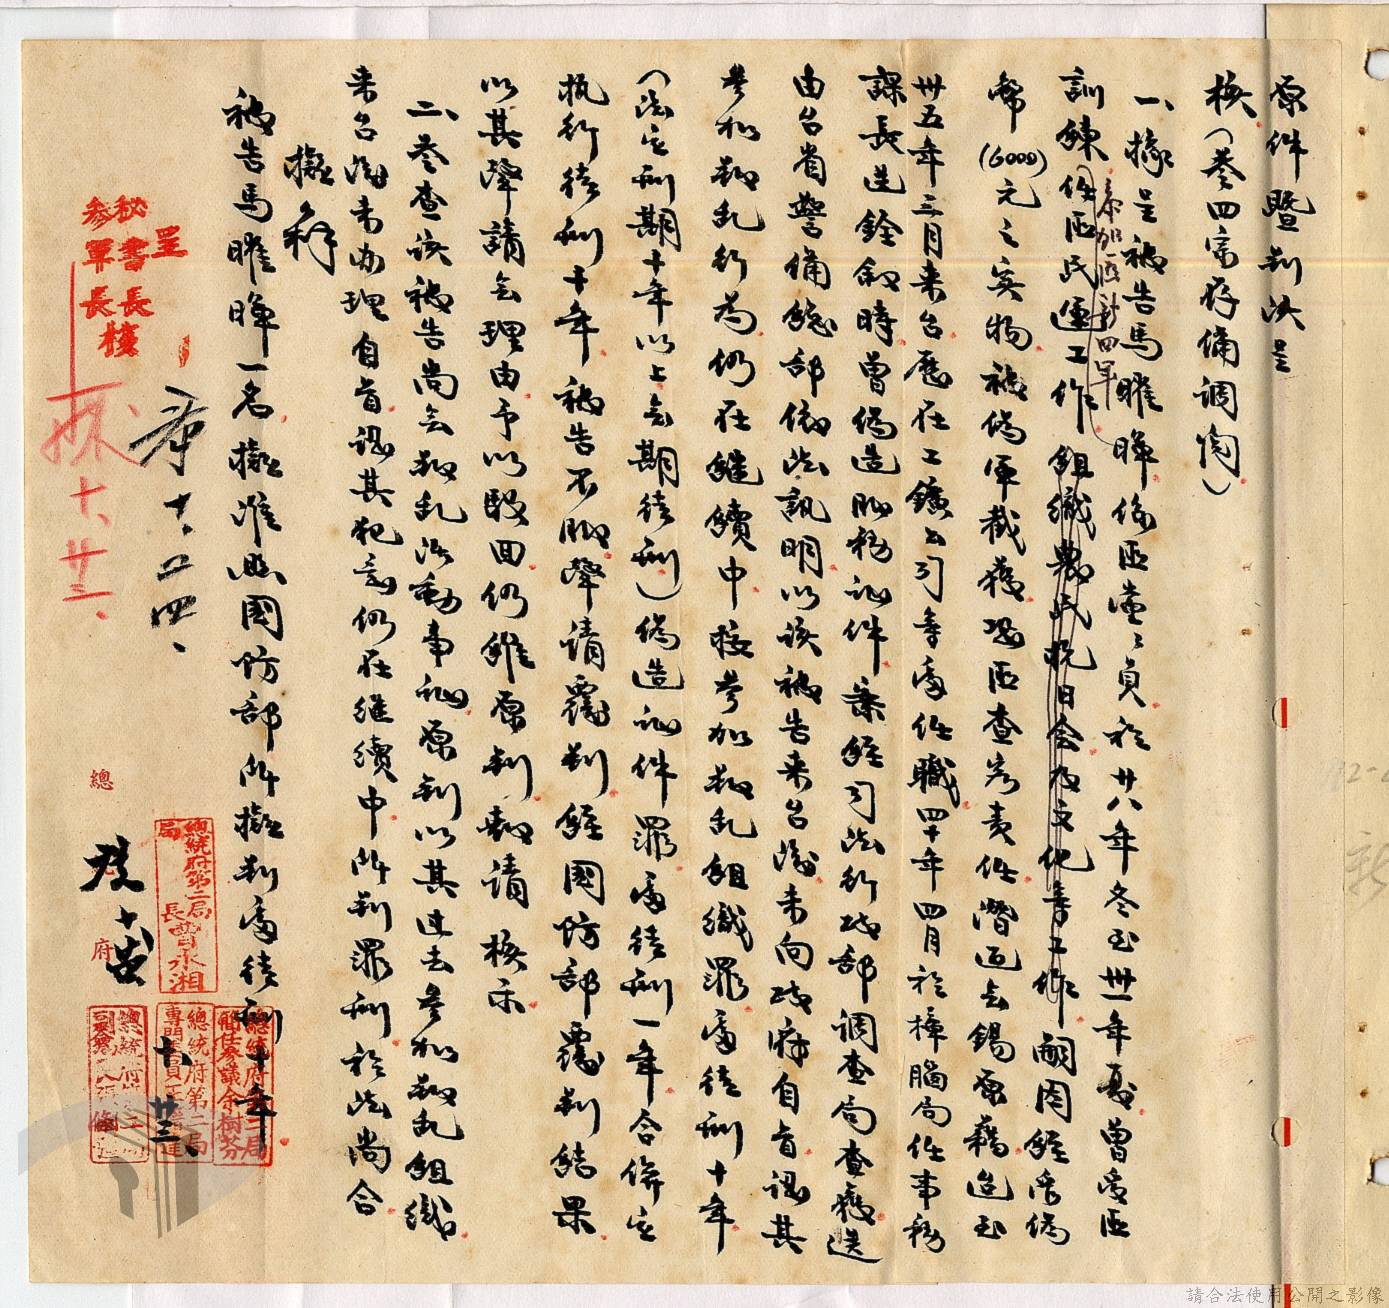 原件暨判決呈
核（卷四宗存備調閱）
一、據呈被告馬曜暉係匪黨黨員於廿八年冬至卅一年夏曾受匪
訓練任匪民運工作組織農民抗日會及文化等工作嗣因經手偽
參加匪新四軍
幣(6000)元之實物被偽軍截獲恐匪查究責任潛返無錫原籍迨至
卅五年三月來台歷在工鑛公司等處任職四十年四月於樟腦局任事務
課長送銓敘時曾偽造服務証件案經司法行政部調查局查獲送
由台省警備總部依法訊明以該被告來台後未向政府自首認其
參加叛亂行為仍在繼續中按參加叛亂組織罪處徒刑十年
（法定刑期十年以上無期徒刑）偽造証件罪處徒刑一年合併定
執行徒刑十年被告不服聲請覆判經國防部覆判結果
以其聲請無理由予以駁回仍維原判報請核示
二、卷查該被告尚無叛亂活動事証原判以其過去參加叛亂組織
來台後未辦理自首認其犯意仍在繼續中所判罪刑於法尚合
擬辦
被告馬曜暉一名擬准照國防部所擬判處徒刑十年
呈
秘書長
參軍長核
十、廿四、
十、廿三、
總統府第二局
局長曹永湘
總
府
總統府第二局
專門委員
十、廿三、
余樹芬